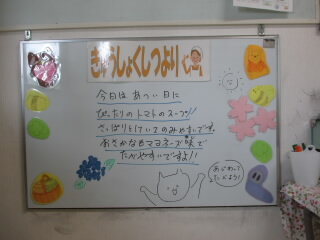 きゅうしょくしつより
今日は あつい日に
ぴったりの トマトのスープ!!
さっぱりとけい2のみやすいです。
おさかなもマヨネーズ味で
たべやすいですよ!!
あじわって
たべよう!